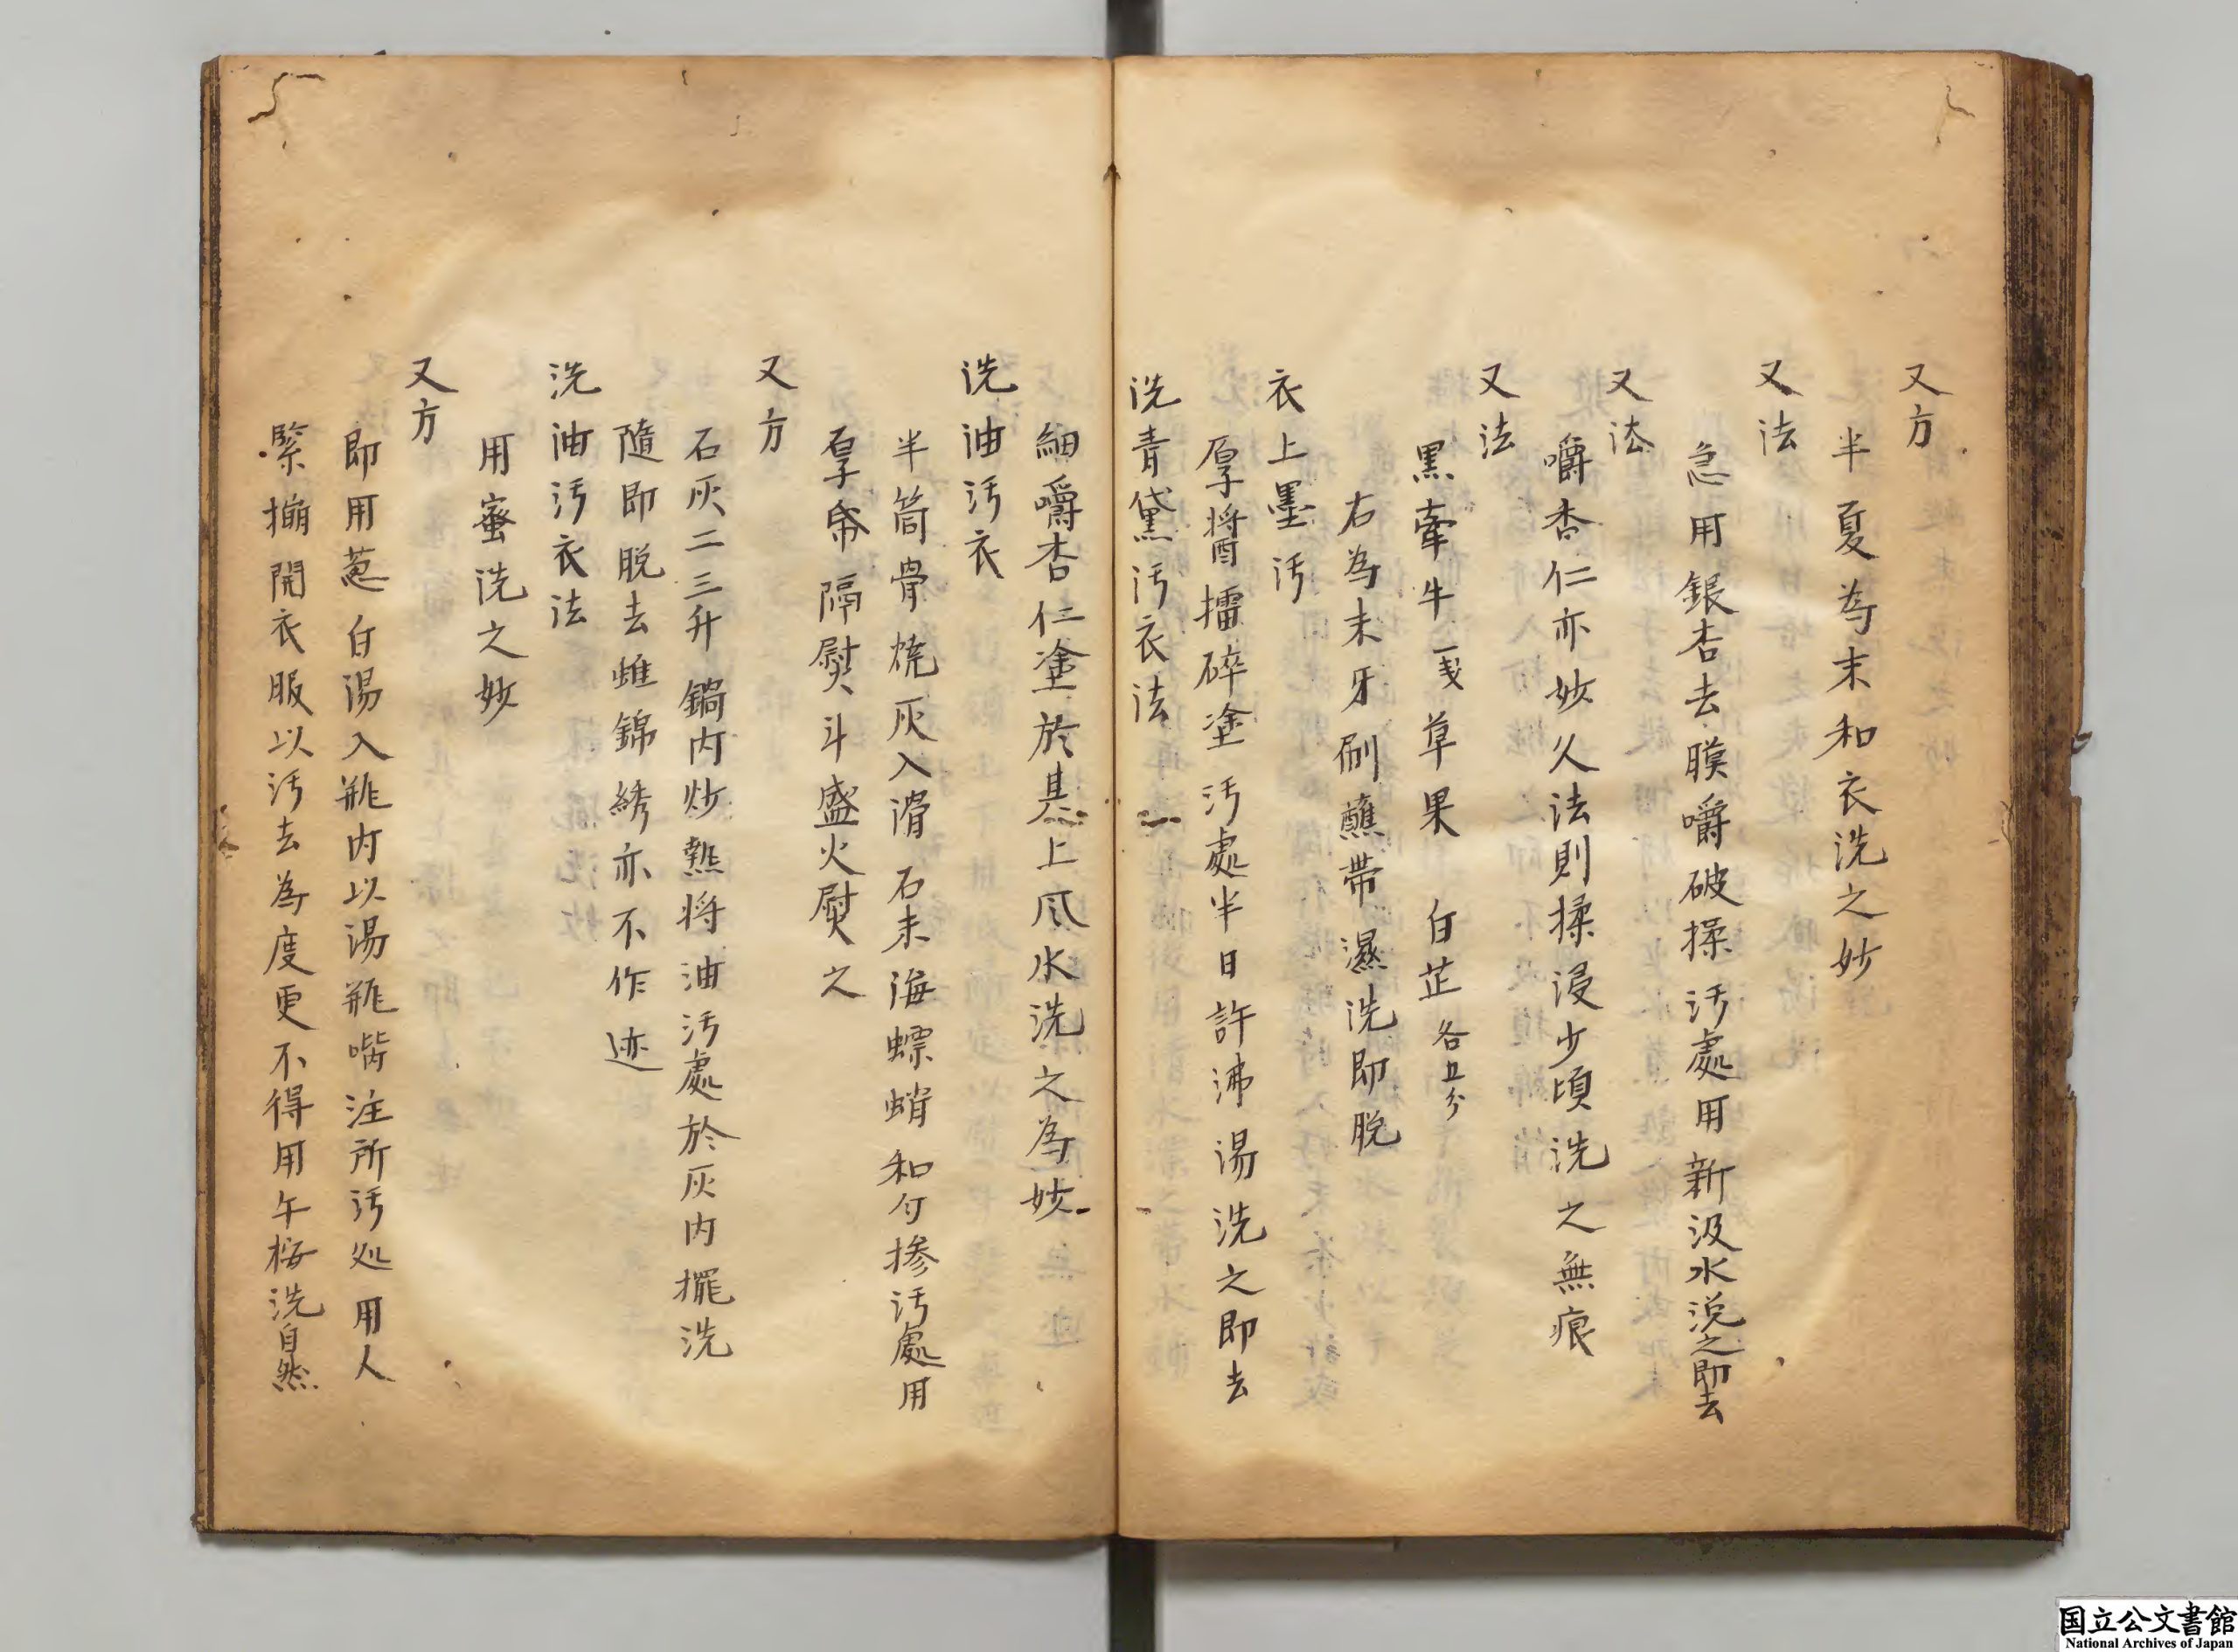 又方
半夏為末和衣洗之妙
又法
急用銀杏去膜嚼破揉汚處用新汲水洗之即去
又法
嚼杏仁亦妙久法則揉浸少頃洗之無痕
又法
黒牽牛 草果 白芷各五分
右為末牙刷蘸帶濕洗即脱
衣上墨汚
厚醬擂碎塗汚處半日許沸湯洗之即去
洗青黛汚衣法
細嚼杏仁塗於其上瓜水洗之為妙
洗油汚衣
半筒骨焼灰入滑石末海螵蛸和匀掺汚處用
厚帋隔熨斗盛火熨之
又方
石灰二三升鍋内炒熱将油汚處於灰内擺洗
隨即脱去雖錦綉亦不作迹
洗油汚衣法
用蜜洗之妙
又方
即用葱白湯入瓶内以湯瓶嘴注所汚処用人
緊搠開衣服以汚去為度更不得用午桵洗自然
国立公文書館
National Archives of Japan